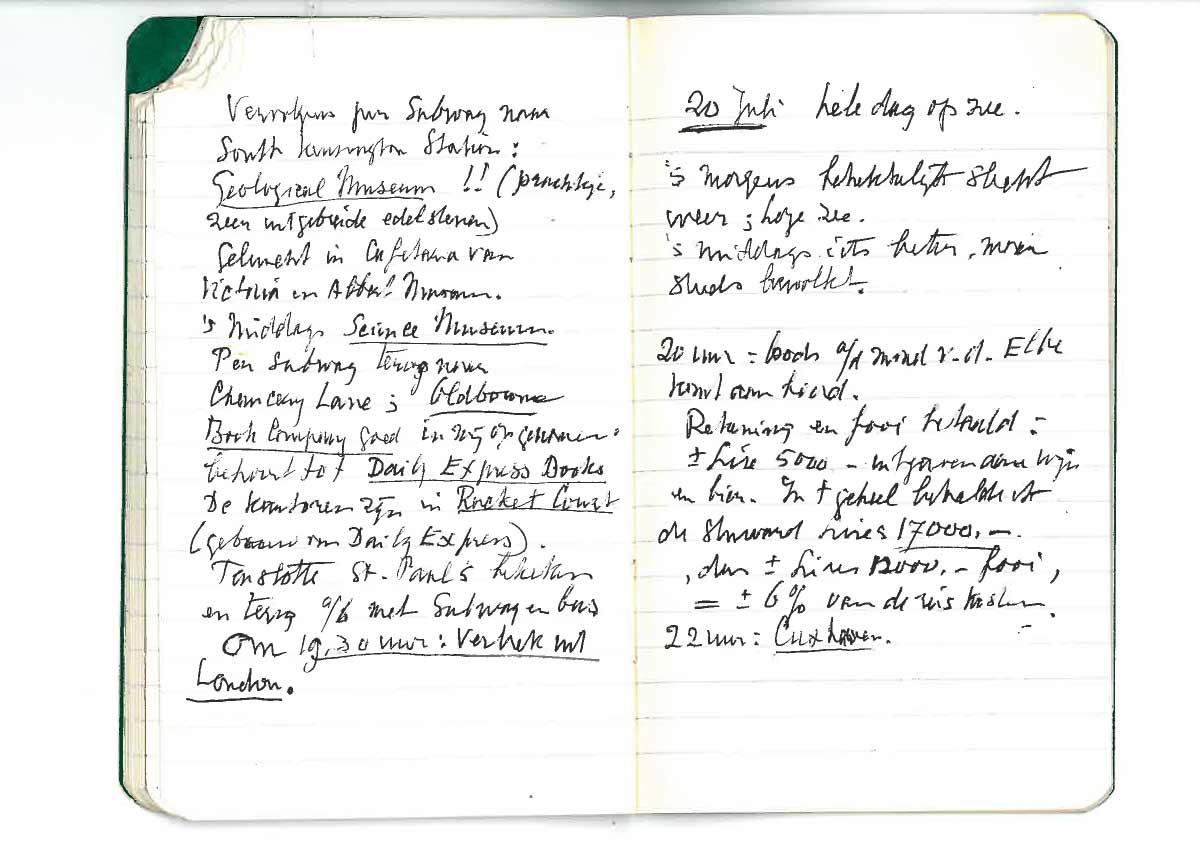 per Subway naar
South Kensington Station:
Geological Museum !! (prachtige,
zeer uitgebreide edelstenen)
Geluncht in Cafetaria van
Victoria en Albert Museum.
's Middags Science Museum.
Per Subway terug naar
Chancery Lane ; Oldbourne
Book Company goed in zij opgenomen:
behoort tot Daily Express Books
De kantoren zijn in Racket Court
(gebouw van Daily Express).
Tenslotte St. Paul's bekeken
en terug a/b met Subway en bus
Om 19.30 uur: Vertrek uit
London.
20 Juli hele dag op zee.
's Morgens slecht
weer ; hoge zee.
's middags iets beter, maar
steeds bewolkt.
20 uur = loods a/d mond v.d. Elbe
komt aan boord.
Rekening en fooi betaald =
± Lire 5000 - uitgaven aan wijn
en bier. In 't geheel betaalde ik
de Steward Lires 17000.-
, dus ± Lires 12000.- fooi,
= ± 6% van de reiskosten.
22 uur = Cuxhaven.